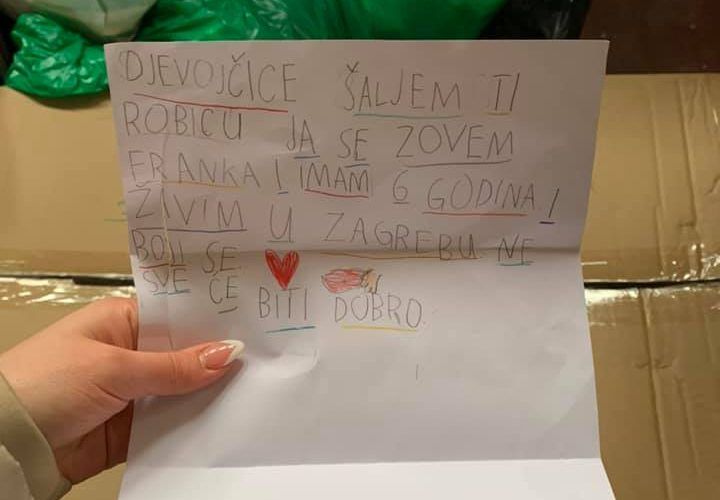 DJEVOJČICE ŠALJEM TI
ROBICU JA SE ZOVEM
FRANKA I IMAM 6 GODINA I
ŽIVIM U ZAGREBU NE
BOJI SE
SVE ĆE BITI DOBRO.